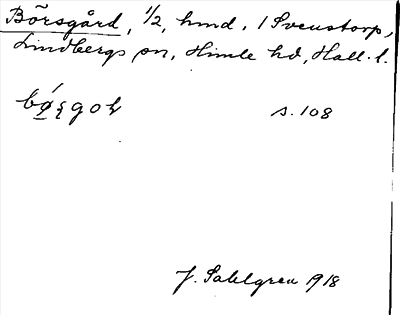 Börsgård, 1/2, hmd. i Svenstorp,
Lindbergs sn, Himle hd, Hall. l.
s. 108
J. Sahlgren 1918